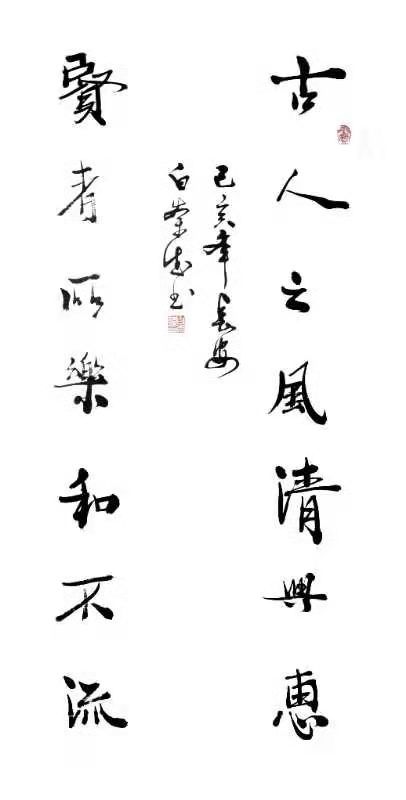 古人之風清與惠
己亥年長安
白 书
賢者所樂和不流